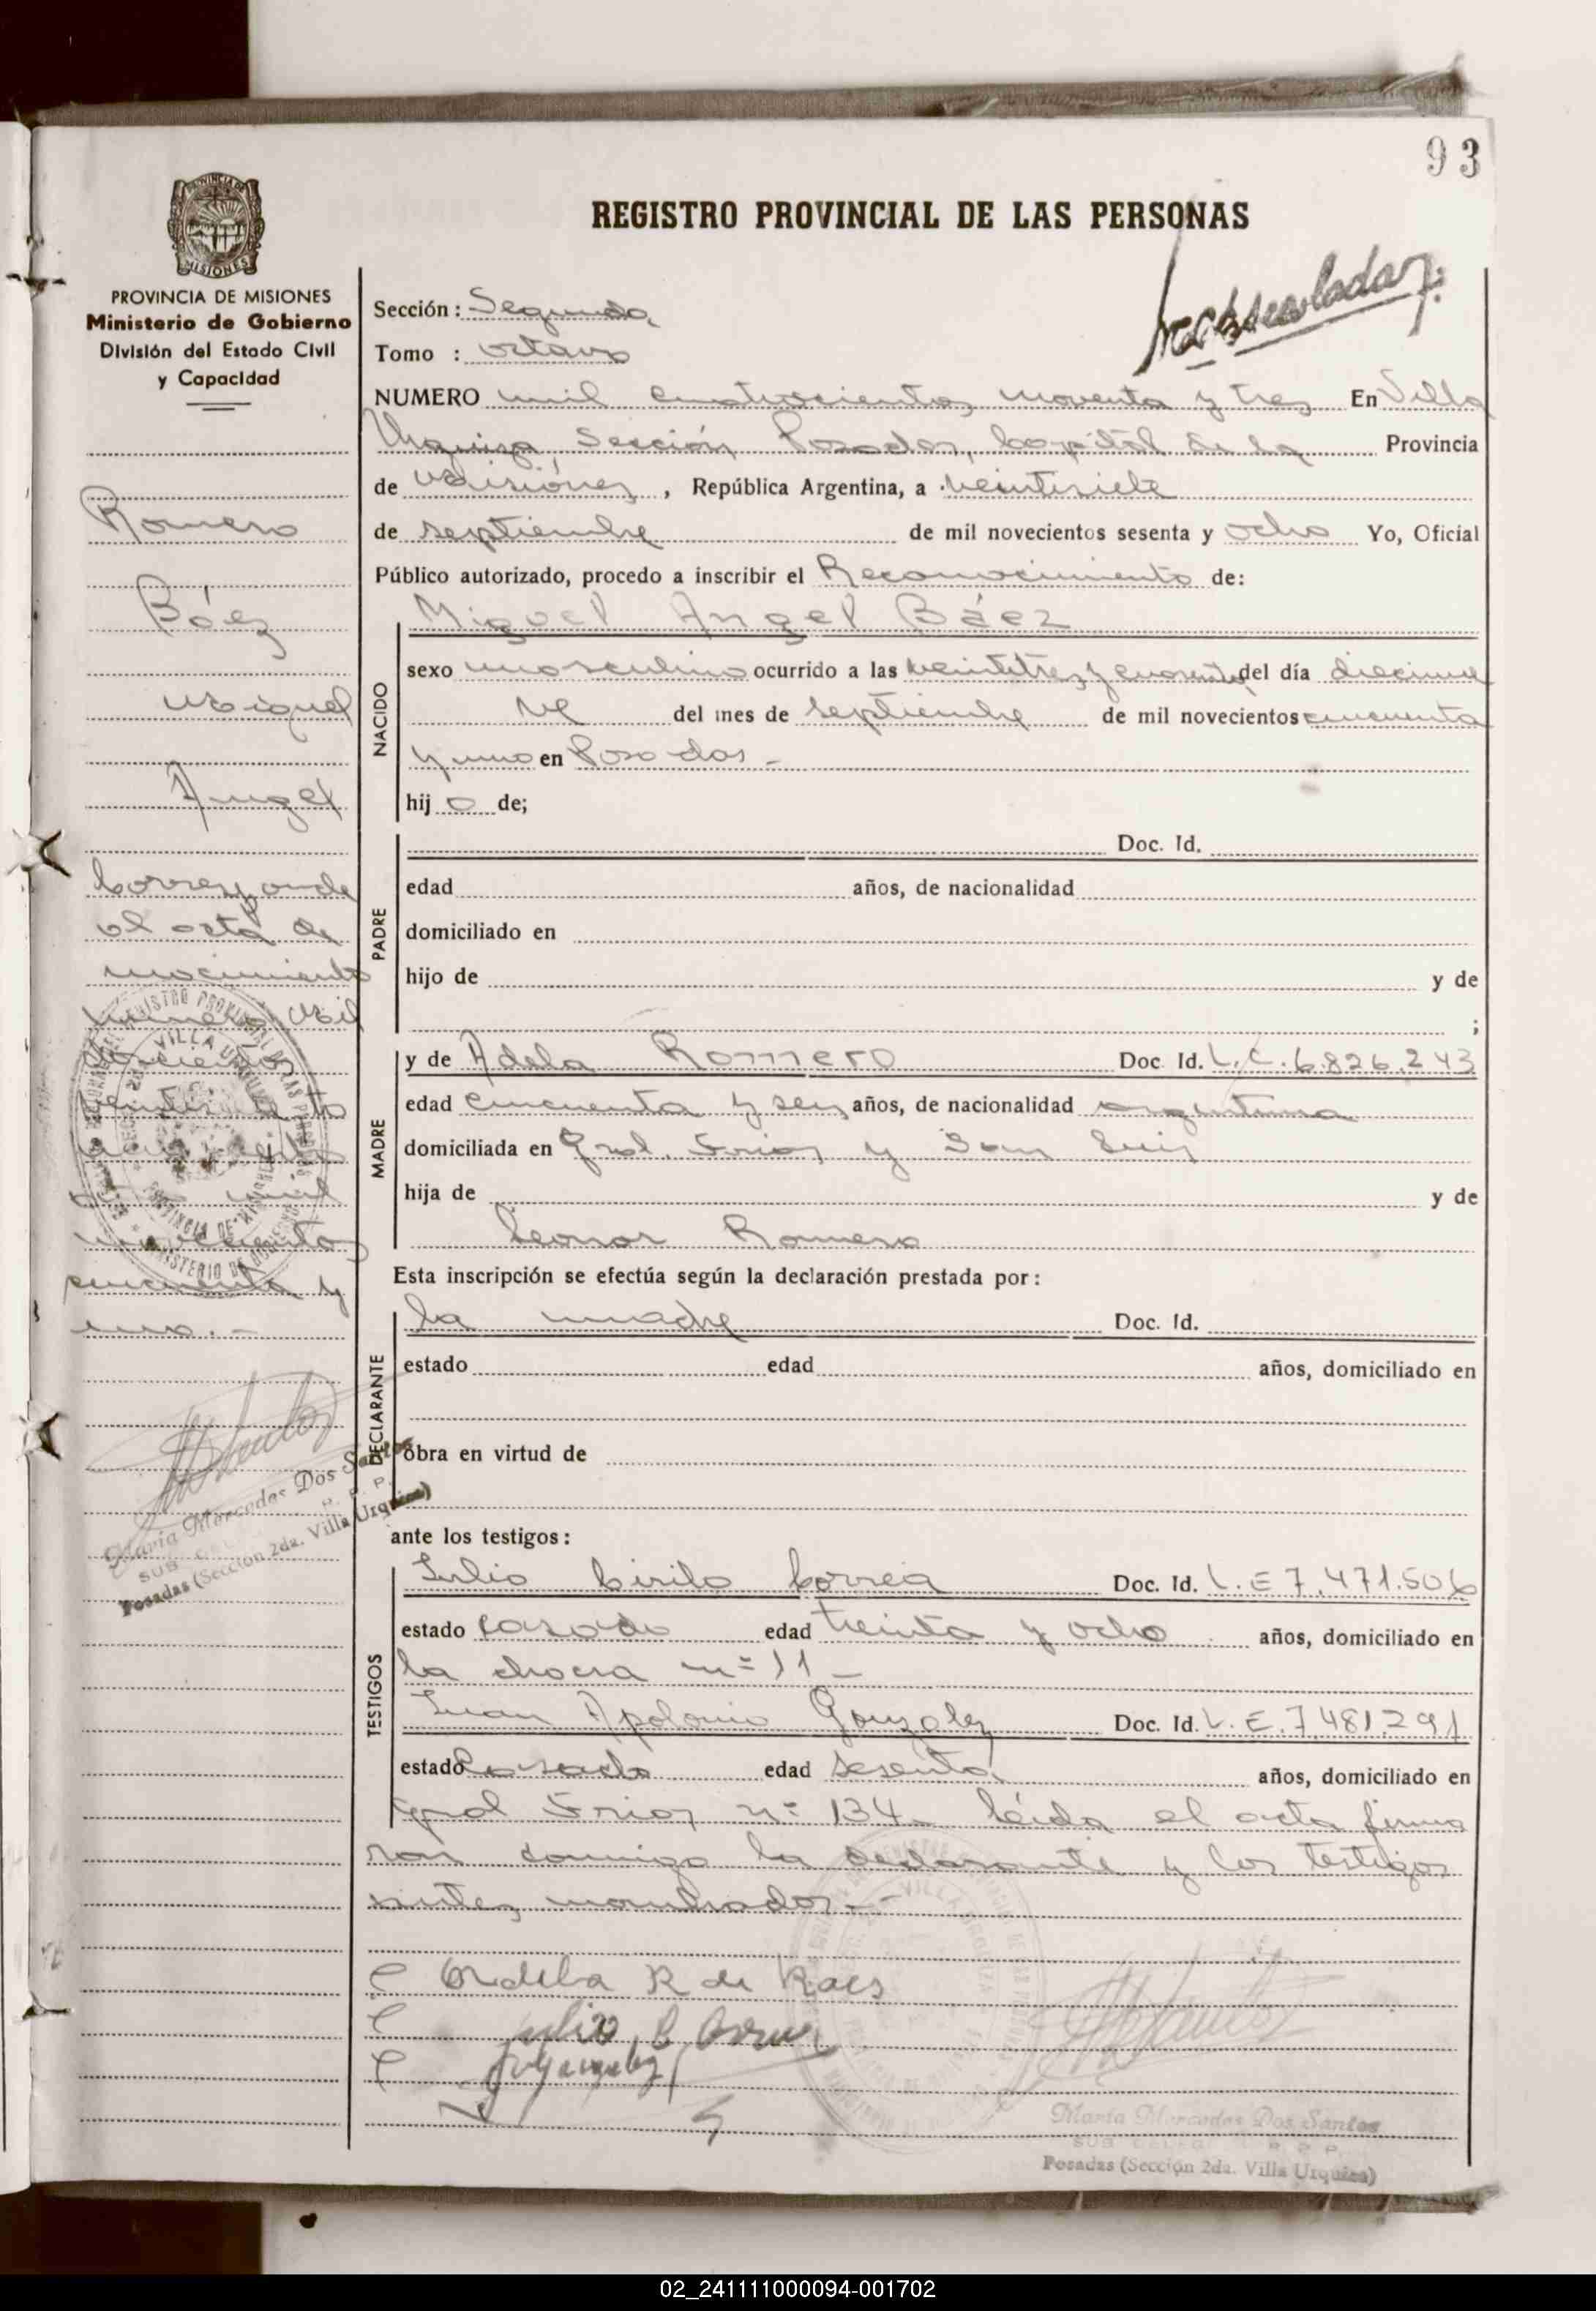 93
REGISTRO PROVINCIAL DE LAS PERSONAS
PROVINCIA DE MISIONES
Ministerio de Gobierno
División del Estado Civil
y Capacidad
Romero
Báez
Miguel
Angel
Corresponde
al acta de
nacimiento
número mil
doscientos
novecientos
cincuenta y
uno.-
María Mercedes Dos Santos
Posadas (Sección 2da. Villa Urquiza)
Sección: Segunda
Tomo : octavo
NUMERO mil cuatrocientos noventa y tres En Villa
Urquiza, Sección Posadas, Capital de la Provincia
de Misiones, República Argentina, a veintisiete
de septiembre de mil novecientos sesenta y ocho Yo, Oficial
Público autorizado, procedo a inscribir el Reconocimiento de:
NACIDO
Miguel Angel Báez
sexo masculino ocurrido a las veintitres y cuarenta del día diecinue
ve del mes de septiembre de mil novecientos cincuenta
y uno en Posadas -
hij o de;
PADRE
Doc. Id.
edad años, de nacionalidad
domiciliado en
hijo de y de
;
MADRE
y de Adela Romero Doc. Id. L.C. 6.826.243
edad cincuenta y seis años, de nacionalidad argentina
domiciliada en Gral. Frias y San Luis
hija de y de
Leonor Romero
Esta inscripción se efectúa según la declaración prestada por:
DECLARANTE
la madre Doc. Id.
estado edad años, domiciliado en
obra en virtud de
ante los testigos:
TESTIGOS
Julio Cirilo Correa Doc. Id. L.E 7.471.506
estado casado edad treinta y ocho años, domiciliado en
la chacra n° 11 -
Juan Apolonio Gonzalez Doc. Id. L.E. 7.481.291
estado casado edad sesenta años, domiciliado en
Gral Frias n° 134. Leída el acta firma
ron conmigo la declarante y los testigos
antes nombrados.-
R de
Maria Mercedes Dos Santos
Posadas (Sección 2da. Villa Urquiza)
02_241111000094-001702